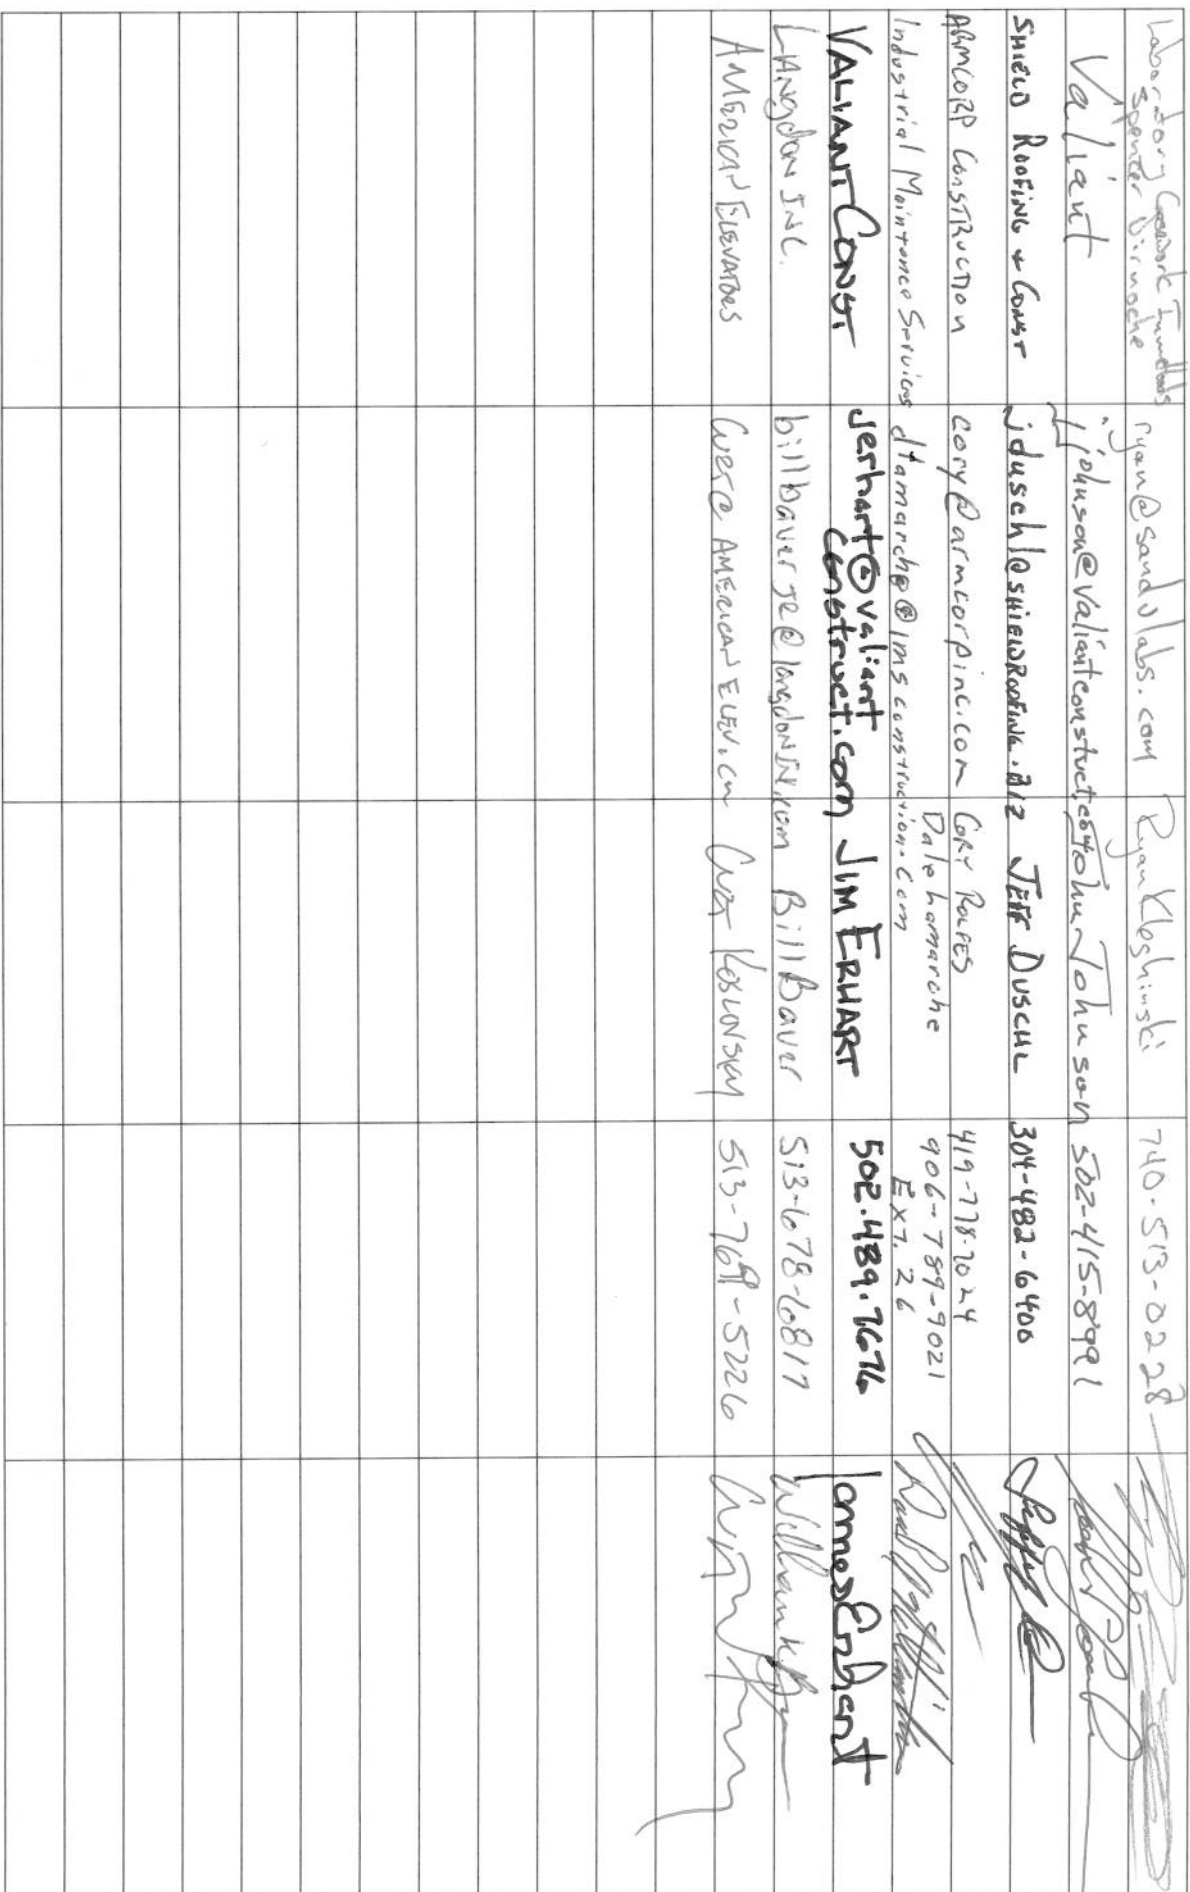 Laboratory Casework
Spencer
ryan@sandvlabs.com
Ryan Kleshinski
740-513-0228
Valiant
jjohnson@valiantconstruct.com
John Johnson
502-415-8991
SHIELD ROOFING & CONST
jduschl@SHIELDROOFING.BIZ
JEFF DUSCHL
304-482-6400
ARMCORP CONSTRUCTION
cory@armcorpinc.com
CORY ROLFES
419-778-7024
Industrial Maintenance Services
dlamarche@imsconstruction.com
Dale Lamarche
906-789-9021
Ext. 26
VALIANT CONST.
jerhart@valiant
construct.com
JIM ERHART
502.489.7676
James Erhart
LANgdON INC.
billbauerJR@langdonINC.com
Bill Bauer
513-678-6817
AMERICAN ELEVATORS
CURT@AMERICANELEV.COM
513-769-5226